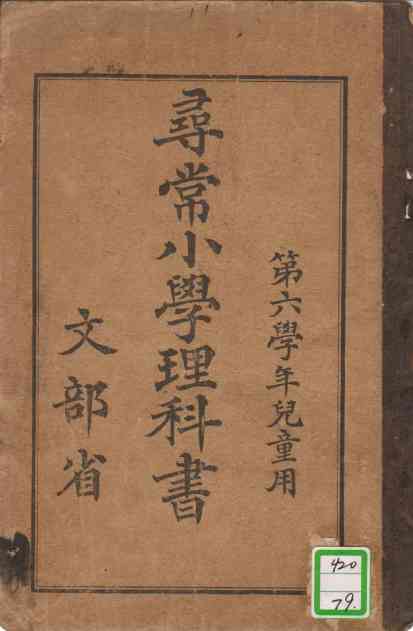 第六學年兒童用
尋常小學理科書
文部省
420
79.